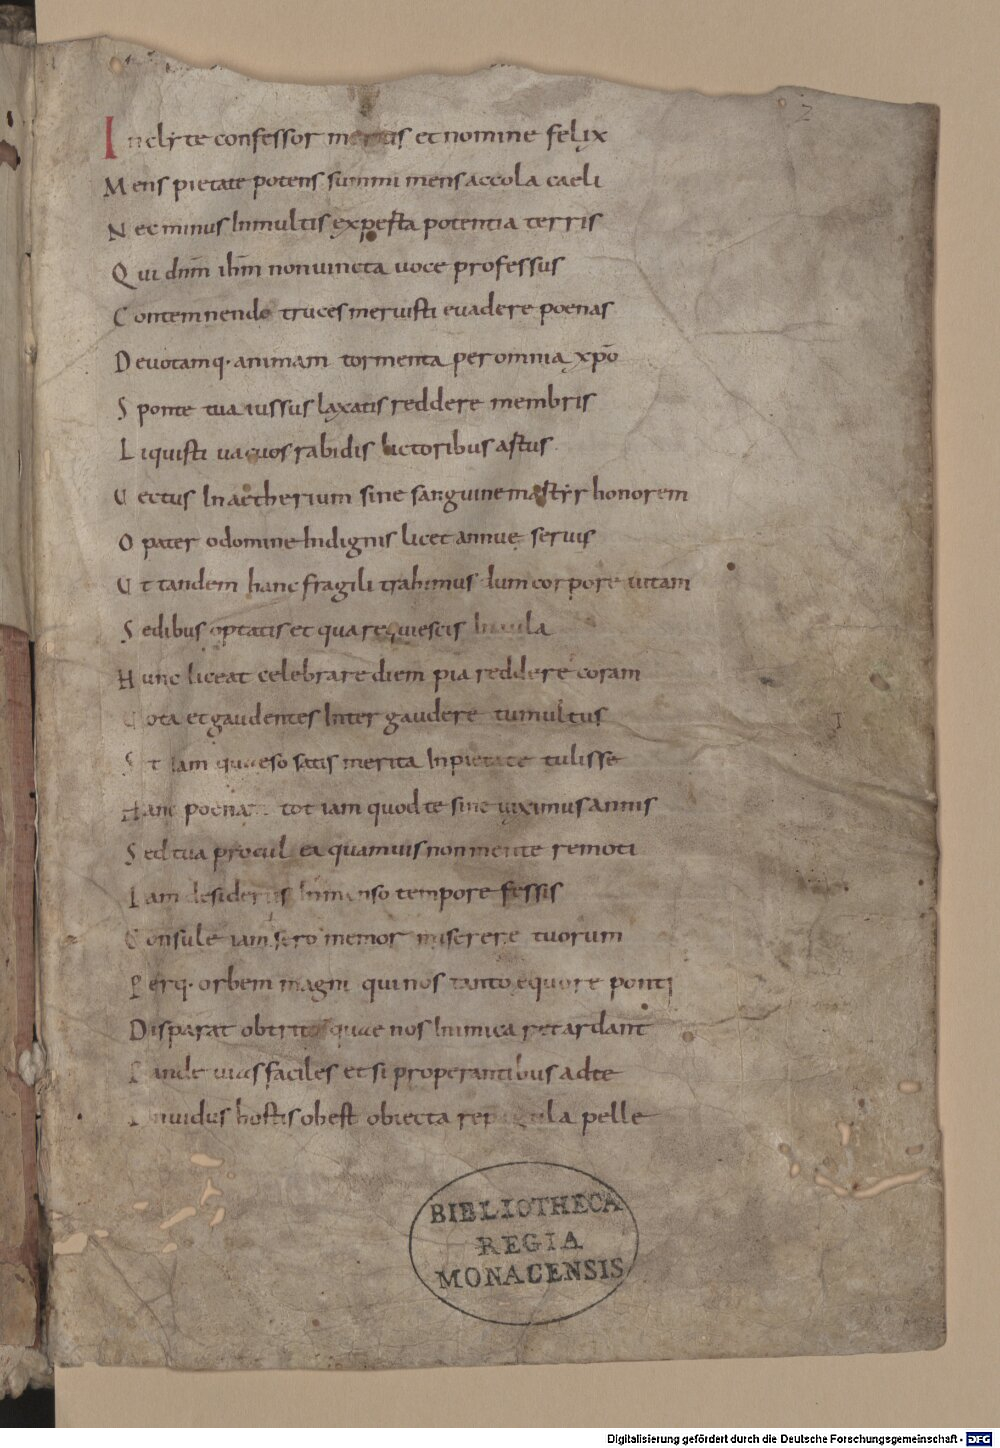 2
Inclyte confessor meritis et nomine felix
Mens pietate potens summi mens accola caeli
Nec minus In multis expefta potentia terris
Qui dnm̄ ihm̄ non uincta uoce professus
Contemnendo truces meruisti euadere poenas
Deuotamq· animam tormenta per omnia xp̄o
Sponte tua iussus laxatis reddere membris
Liquisti uacuos rabidis lictoribus astus
Uectus In aetherium sine sanguine martyr honorem
O pater o domine Indignis licet annue seruis
Ut tandem hanc fragili trahimus dum corpore uitam
Sedibus optatis et qua requiescis In aula
Hunc liceat celebrare diem pia reddere coram
Uota et gaudentes Inter gaudere tumultus
Sit Iam quaeso satis merita Inpietate tulisse
Hanc poenam tot iam quod te sine uiximus annis
Sed tua procul ea quamuis non mente remoti
Iam desideriis Inmenso tempore fessis
Consule iam sero memor miserere tuorum
Perq· orbem magni qui nos tanto equore ponti
Disparat obtritis quae nos Inimica retardant
Pande uias faciles et si properantibus ad te
Inuidus hostis obest obiecta repagula pelle
I
BIBLIOTHECA
REGIA
MONACENSIS
Digitalisierung gefördert durch die Deutsche Forschungsgemeinschaft - DFG